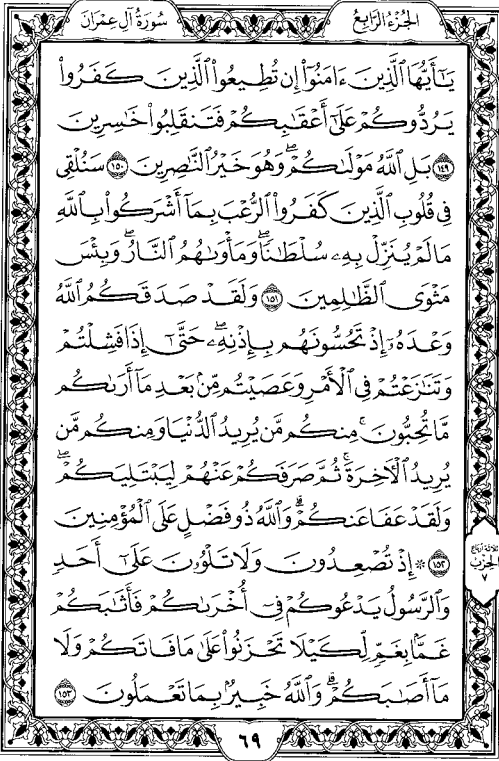 سُورَةُ آلِ عِمْرَانَ
الجُزْءُ الرَّابِعُ
يَـٰٓأَيُّهَا ٱلَّذِينَ ءَامَنُوٓا۟ إِن تُطِيعُوا۟ ٱلَّذِينَ كَفَرُوا۟
يَرُدُّوكُمْ عَلَىٰٓ أَعْقَـٰبِكُمْ فَتَنقَلِبُوا۟ خَـٰسِرِينَ
١٤٩ بَلِ ٱللَّهُ مَوْلَىٰكُمْ ۖ وَهُوَ خَيْرُ ٱلنَّـٰصِرِينَ ١٥٠ سَنُلْقِى
فِى قُلُوبِ ٱلَّذِينَ كَفَرُوا۟ ٱلرُّعْبَ بِمَآ أَشْرَكُوا۟ بِٱللَّهِ
مَا لَمْ يُنَزِّلْ بِهِۦ سُلْطَـٰنًا ۖ وَمَأْوَىٰهُمُ ٱلنَّارُ ۚ وَبِئْسَ
مَثْوَى ٱلظَّـٰلِمِينَ ١٥١ وَلَقَدْ صَدَقَكُمُ ٱللَّهُ
وَعْدَهُۥٓ إِذْ تَحُسُّونَهُم بِإِذْنِهِۦ ۖ حَتَّىٰٓ إِذَا فَشِلْتُمْ
وَتَنَـٰزَعْتُمْ فِى ٱلْأَمْرِ وَعَصَيْتُم مِّنۢ بَعْدِ مَآ أَرَىٰكُم
مَّا تُحِبُّونَ ۚ مِنكُم مَّن يُرِيدُ ٱلدُّنْيَا وَمِنكُم مَّن
يُرِيدُ ٱلْـَٔاخِرَةَ ۚ ثُمَّ صَرَفَكُمْ عَنْهُمْ لِيَبْتَلِيَكُمْ ۖ
وَلَقَدْ عَفَا عَنكُمْ ۗ وَٱللَّهُ ذُو فَضْلٍ عَلَى ٱلْمُؤْمِنِينَ
١٥٢ ۞ إِذْ تُصْعِدُونَ وَلَا تَلْوُۥنَ عَلَىٰٓ أَحَدٍ
وَٱلرَّسُولُ يَدْعُوكُمْ فِىٓ أُخْرَىٰكُمْ فَأَثَـٰبَكُمْ
غَمًّۢا بِغَمٍّ لِّكَيْلَا تَحْزَنُوا۟ عَلَىٰ مَا فَاتَكُمْ وَلَا
مَآ أَصَـٰبَكُمْ ۗ وَٱللَّهُ خَبِيرٌۢ بِمَا تَعْمَلُونَ ١٥٣
ثلاثة أرباع
الحِزْب
٧
٦٩